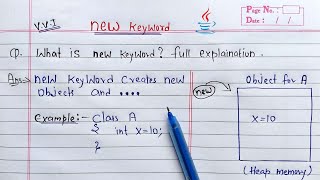 V.V.I
new keyword
Page No. :
Date : / /
Q. What is new keyword? full explaination.
Ans:→ new keyword creates new
objects and ....
Example:- class A
{ int x=10;
}
new
Object for A
x=10
(Heap memory)